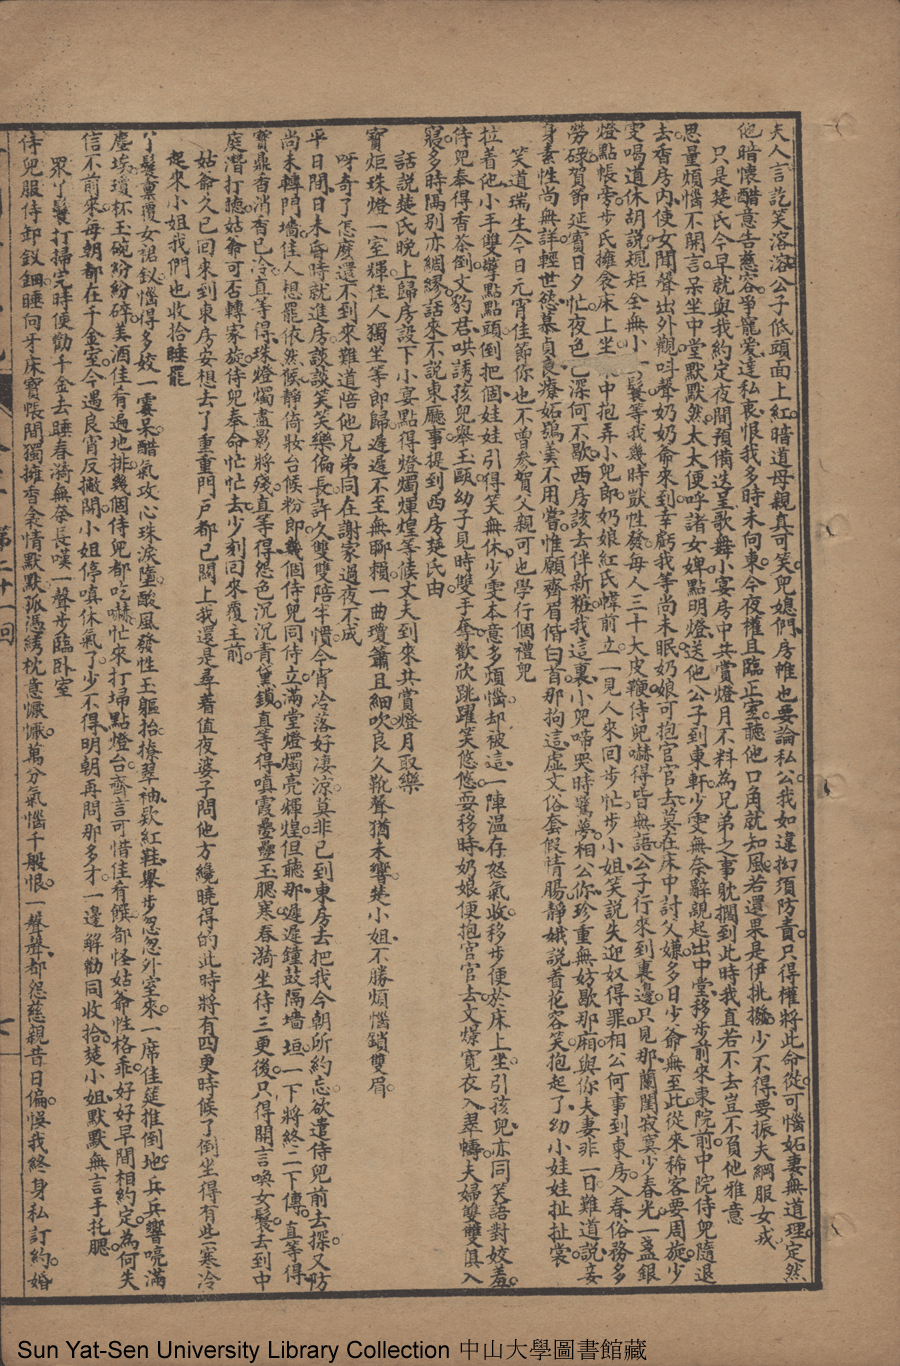 夫人言訖笑溶溶公子低頭面上紅暗道母親真可笑兒媳們房帷也要論私公我如違拗須防責只得權將此命從可惱妬妻無道理定然
他暗懷醋意告慈容爭寵爱逞私衷恨我多時未向東今夜權且臨正室聽他口角就知風若還果是伊挑撥少不得要振夫綱服女戎
只是楚氏今早就與我約定夜間預備迭呈歌舞小宴房中共賞燈月不料為兄弟之事躭擱到此時我直若不去豈不負他雅意
思量煩惱不開言呆坐中堂默默然太太便呼諸女婢點明燈送他公子到東軒少雯無奈辭親起出中堂移步前來東院前中院侍兒隨退
去香房內使女聞聲出外觀呌聲奶奶爺來到幸虧我等尚未眠奶娘可抱官官去莫在床中討父嫌多日少爺無至此從來稀客要周旋少
雯喝道休胡説規矩全無小丫鬟等我幾時獃性發每人三十大皮鞭侍兒嚇得皆無語公子行來到裏邊只見那蘭閨寂寞少春光一盞銀
燈點帳旁步氏擁衾床上坐中抱弄小兒郎奶娘紅氏幃前立一見人來回步忙步小姐笑說失迎奴得罪相公何事到東房入春俗務多
勞碌賀節延賓日夕忙夜色已深何不歇西房該去伴新粧我這裏小兒啼哭時驚夢相公你珍重無妨歇那廂與你夫妻非一日難道説妾
身素性尚無詳輕世慾慕貞良療妬鶊羮不用當惟願齊眉偕白首那拘這虛文俗套假情腸靜娥説着花容笑抱起了幼小娃娃扯扯裳
笑道瑞生今日元宵佳節你也不曾參賀父親可也學行個禮兒
拉着他小手雙擎點點頭倒把個娃娃引得笑無休少雯本意多煩惱却被這一陣温存怒氣收移步便於床上坐引孩兒亦同笑語對姣羞
侍兒奉得香茶倒文豹君哄誘孩兒舉玉甌幼子見時雙手奪歡欣跳躍笑悠悠耍移時奶娘便抱官官去文燝寬衣入翠幬夫婦雙雙俱入
寢多時隔別亦綢繆話來不説東廳事提到西房楚氏由
話説楚氏晚上歸房設下小宴點得燈燭煇煌等候丈夫到來共賞燈月取樂
寶炬珠燈一室輝佳人獨坐等郎歸遲遲不至無聊賴一曲瓊簫且細吹良久靴聲猶未響楚小姐不勝煩惱鎖雙眉
呀奇了怎麼還不到來難道陪他兄弟同在謝家過夜不成
平日間日未昏時就進房談談笑笑樂偏長許久雙雙陪半慣今宵冷落好凄凉莫非已到東房去把我今朝所約忘欲遣侍兒前去探又防
尚未轉門墻佳人想罷依然候靜倚妝台候粉郎幾個侍兒同侍立滿堂燈燭亮輝煌但聽那遲遲鐘鼓隔墻垣一下將終二下傳直等得
寶鼎香消香已冷直等得珠燈燭盡影將殘直等得怨色沉沉青黛鎖直等得嗔霞疊疊玉腮寒春漪坐待三更後只得開言喚女鬟去到中
庭潛打聽姑爺可否轉家旋侍兒奉命忙忙去少刻回來覆主前
姑爺久已回來到東房安想去了重重門戶都已関上我還是尋着值夜婆子問他方纔曉得的此時將有四更時候了倒坐得有些寒冷
起來小姐我們也收拾睡罷
丫髮稟覆女裙釵惱得多姣一霎呆醋氣攻心珠淚墮酸風發性玉軀抬撩翠袖欵紅鞋舉步忽忽外室來一席佳筵推倒地乒乓響喨滿
塵埃瓊杯玉碗紛紛碎美酒佳肴遍地排幾個侍兒都吃嚇忙來打埽點燈台齊言可惜佳肴饌都怪姑爺性格乖好好早間相約定為何失
信不前來每朝都在千金室今遇良宵反撇開小姐停嗔休氣了少不得明朝再問那多才一邊解勸同收拾楚小姐默默無言手托腮
眾丫鬟打掃完時便勸千金去睡春漪無奈長嘆一聲步臨卧室
侍兒服侍卸釵鈿睡向牙床寶帳間獨擁香衾情默默孤憑綉枕意懨懨萬分氣惱千般恨一聲聲都怨慈親昔日偏悞我終身私訂約婚
第二十一回
七
Sun Yat-Sen University Library Collection 中山大學圖書館藏